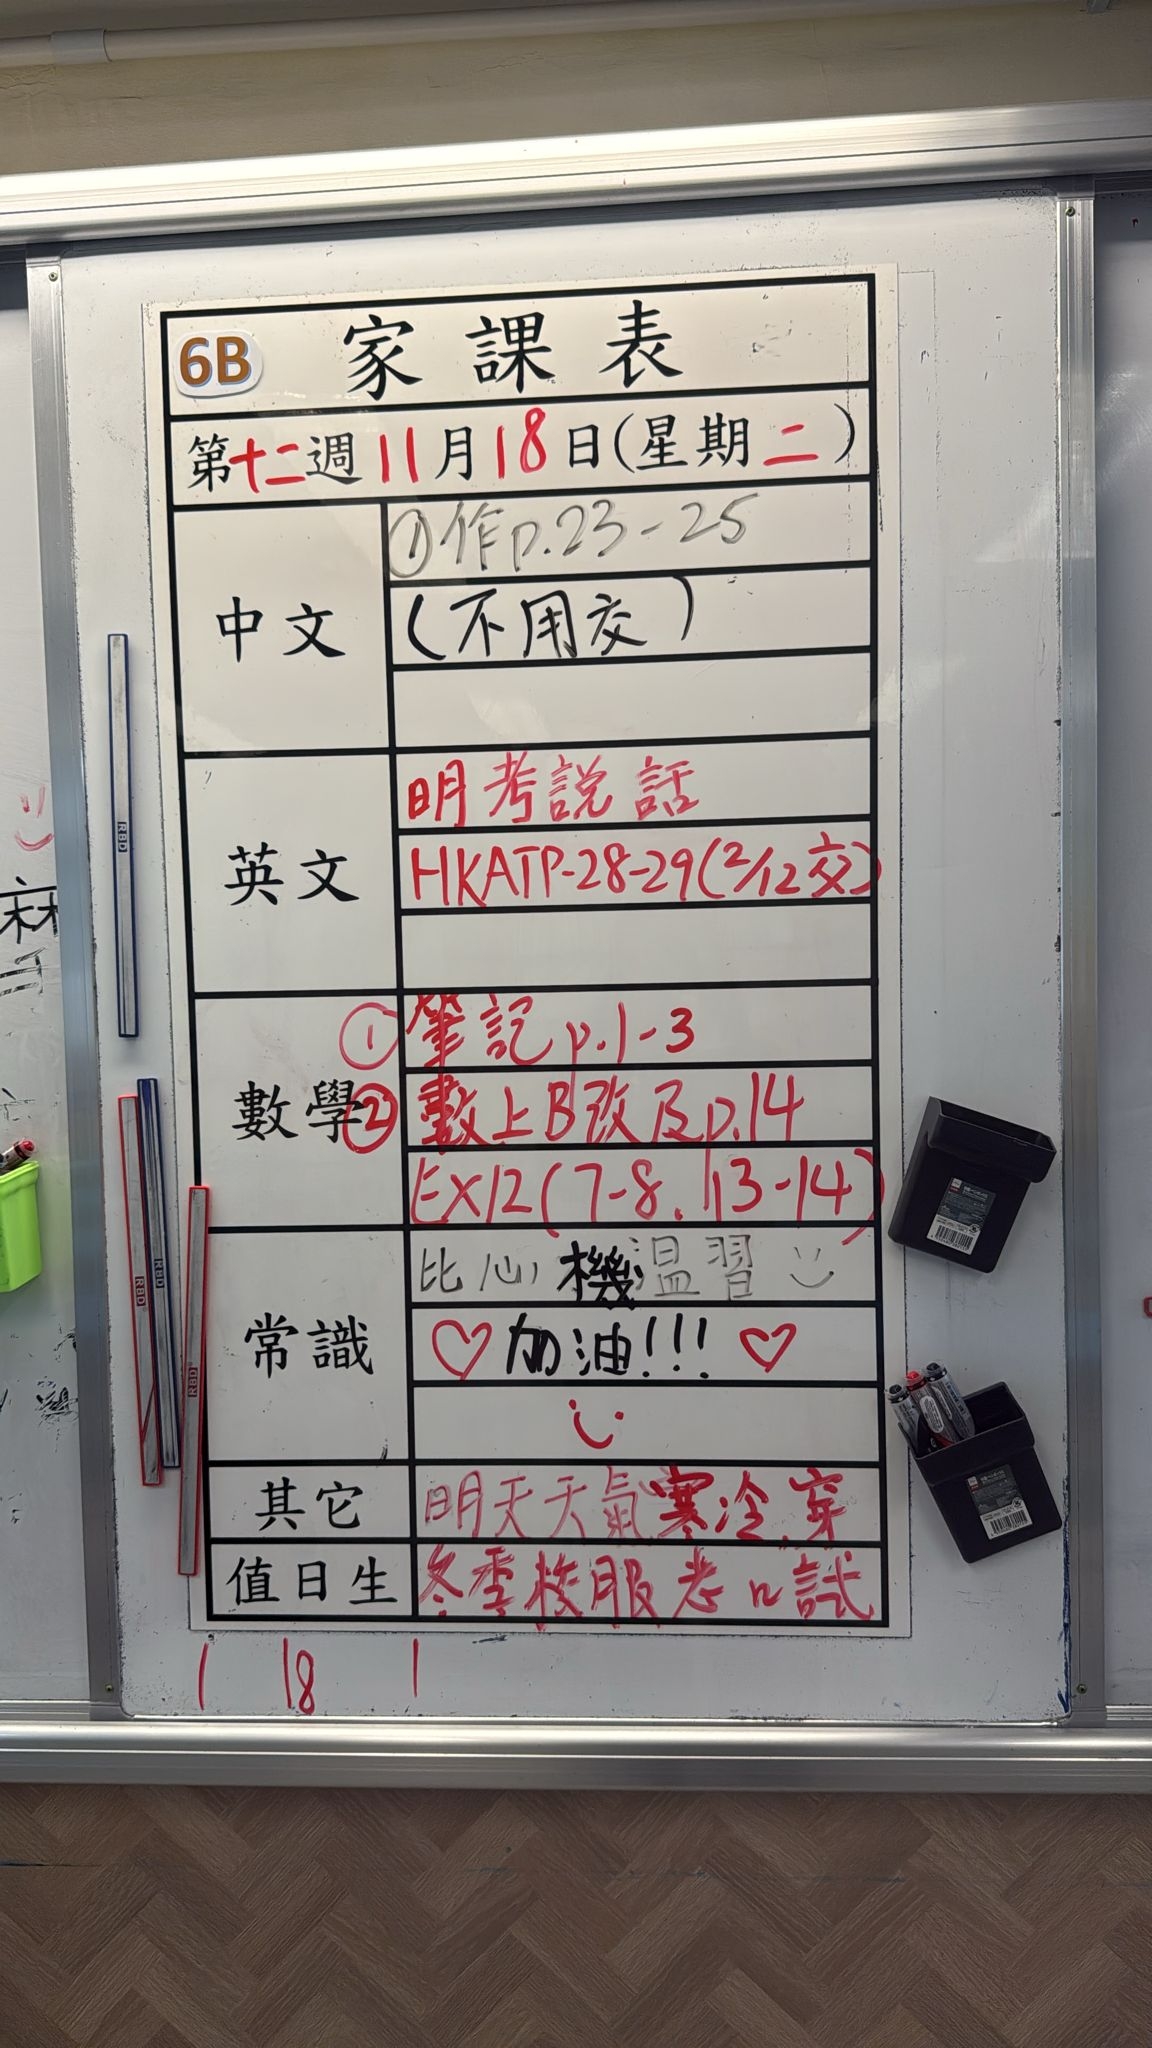 6B 家課表
第十二週11月18日(星期二)
中文
①作p.23-25
(不用交)
英文
明考說話
HKATP-28-29(2/12交)
數學
①筆記p.1-3
②數上B改及p.14
EX12(7-8, 13-14)
常識
比心機溫習
加油!!!
其它
明天天氣寒冷,穿
值日生
冬季校服考口試
1 18 1
RBD
RBD
RBD
RBD